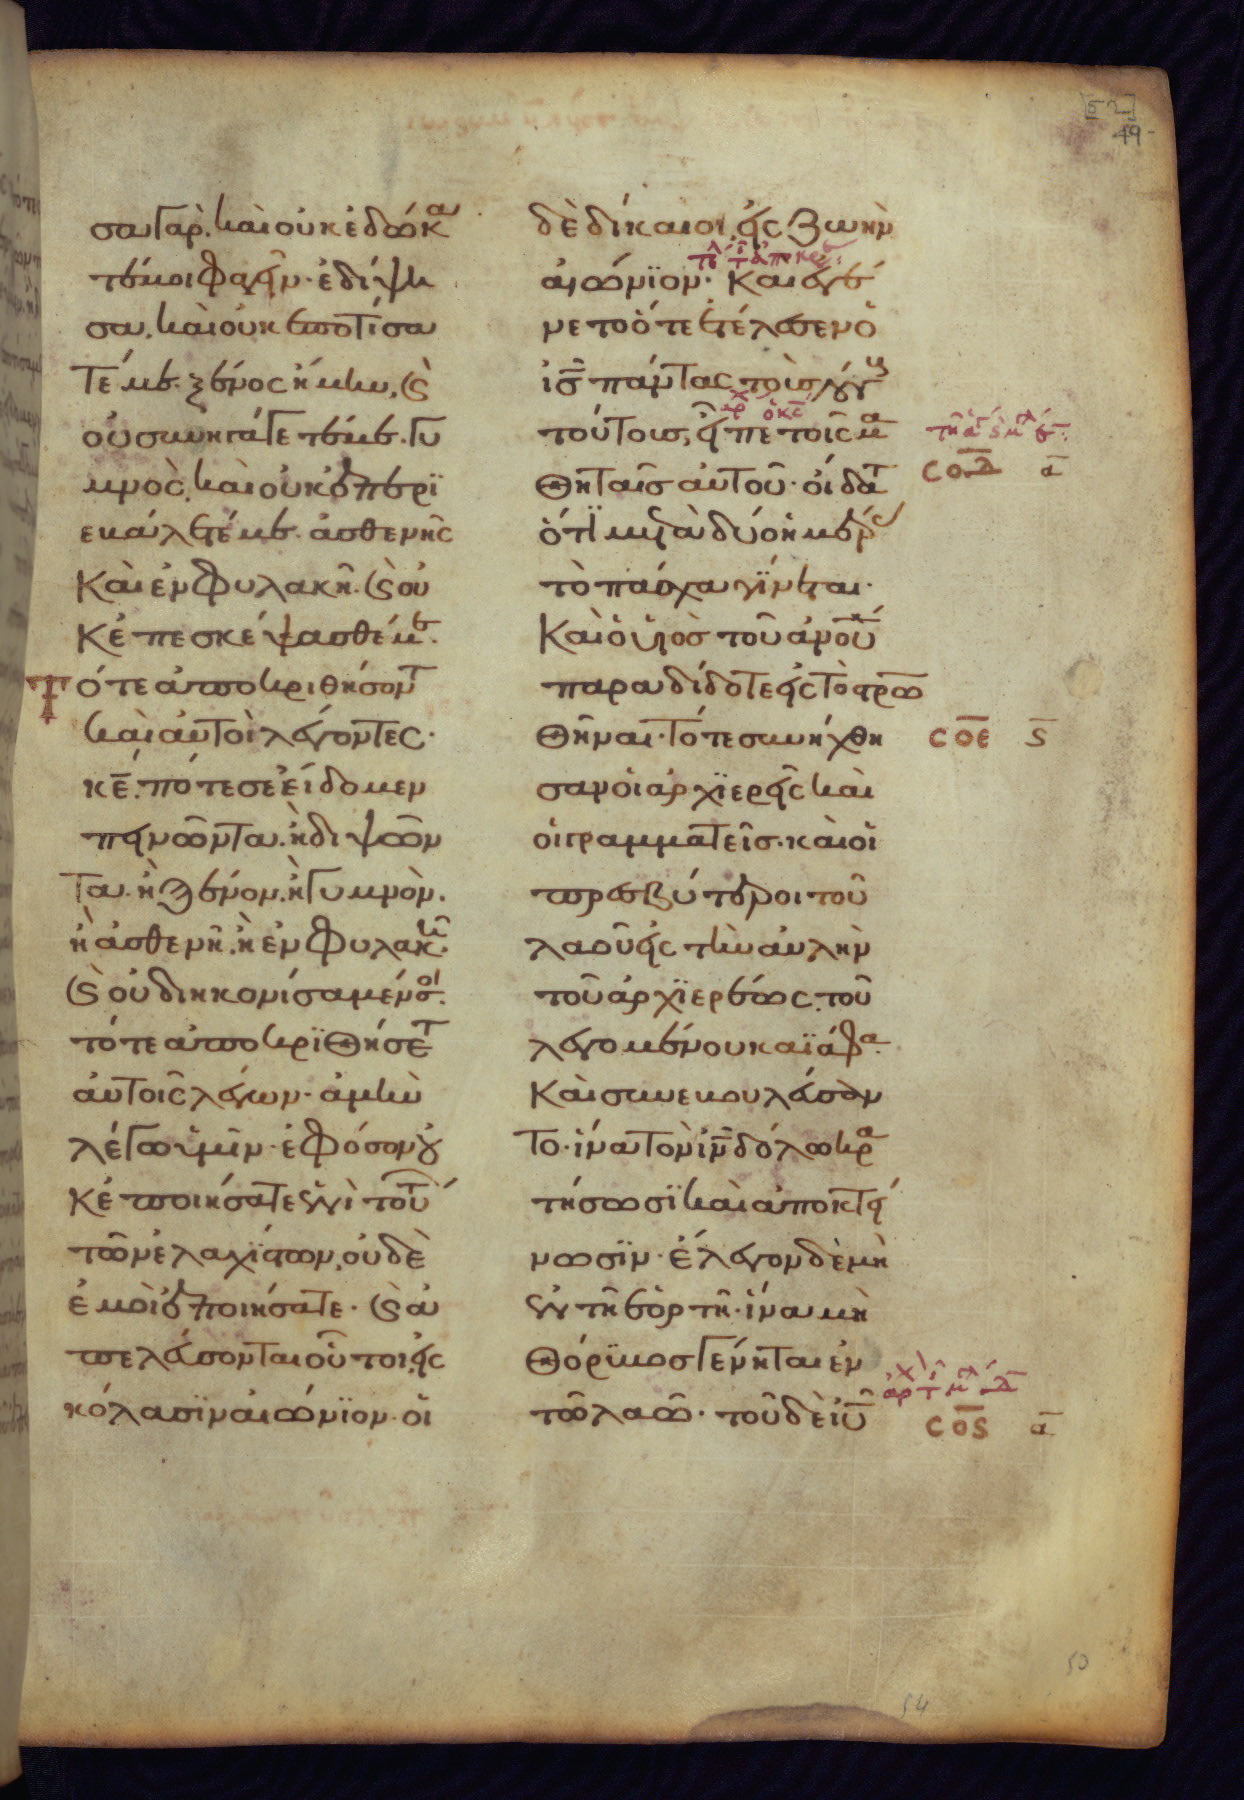 σα γὰρ, καὶ οὐκ ἐδώκα
τέ μοι φαγεῖν· ἐδίψη
σα, καὶ οὐκ ἐποτίσα
τέ με· ξένος ἤμην, καὶ
οὐ συνηγάγετέ με· γυ
μνὸς, καὶ οὐ περι
εβάλετέ με· ἀσθενὴς
καὶ ἐν φυλακῆ· καὶ οὐ
κ ἐπεσκέψασθέ με·
Τότε ἀποκριθήσοντ
καὶ αὐτοὶ λέγοντες·
κε̄· πότε σε εἴδομεν
πεινῶντα· ἢ διψῶν
τα· ἢ ξένον· ἢ γυμνὸν·
ἢ ἀσθενῆ· ἢ ἐν φυλακῆ·
καὶ οὐ διηκονίσαμέν σοι·
τότε ἀποκριθήσετ
αὐτοῖς λέγων· ἀμὴν
λέγω ὑμῖν· ἐφόσον οὐ
κ ἐποιήσατε ἑνὶ τούτ
τῶν ἐλαχίστων, οὐδὲ
ἐμοὶ ἐποιήσατε· καὶ ἀ
πελεύσονται οὗτοι εἰς
κόλασιν αἰώνιον· οἱ
δὲ δίκαιοι εἰς ζωὴν
αἰώνιον· Καὶ ἐγέ
νετο ὅτε ἐτέλεσεν ὁ
ισ̄ πάντας τοὺς λόγους
τούτους, εἶπε τοῖς μα
θηταῖς αὐτοῦ· οἴδατ
ὅτι μετὰ δύο ἡμέρας
τὸ πάσχα γίνεται·
Καὶ ὁ υἱὸς τοῦ ἀνοῦ
παραδίδοτε εἰς τὸ στρω
θῆναι· Τότε συνήχθη
σαν οἱ ἀρχιερεῖς καὶ
οἱ γραμματεῖς· καὶ οἱ
πρεσβύτεροι τοῦ
λαοῦ εἰς τὴν αὐλὴν
τοῦ ἀρχιερέως· τοῦ
λεγομένου καϊάφα·
Καὶ συνεβουλεύσαν
το· ἵνα τὸν ιν̄ δόλω κρα
τήσωσι καὶ ἀποκτεί
νωσιν· ἔλεγον δὲ μὴ
ἐν τῆ ἑορτῆ· ἵνα μὴ
θόρυβος γένηται ἐν
τῶ λαῶ· τοῦ δὲ ιῡ
σοδ̄ ᾱ
σοε̄ ϛ̄
σοϛ̄ ᾱ
[52]
49
50
54